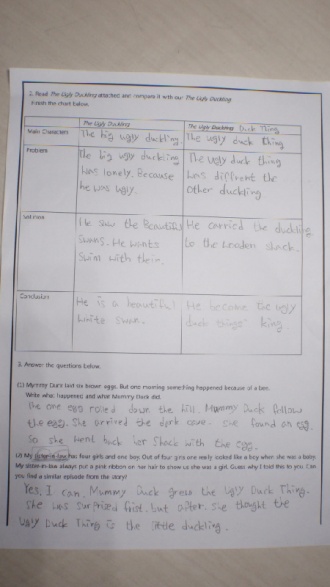 2. Read The Ugly Duckling attached and compare it with our The Ugly Duckling
Finish the chart below.
The Ugly Duckling
The Ugly Duckling Duck Thing
Main Characters
The big ugly duckling
The ugly duck thing
Problem
The big ugly duckling
was lonely. Because
he was ugly.
The ugly duck thing
was diffrent the
other duckling
He saw the Beautiful
swans. He wants
swim with them.
He carried the duckling
to the wooden shack.
Conclusion
He is a beautiful
white swan.
He become the ugly
duck things' king.
3. Answer the questions below.
(1) Mummy Duck laid six brown eggs. But one morning something happened because of a bee.
Write what happened and what Mummy Duck did.
the one egg rolled down the hill. Mummy Duck follow
the egg. She arrived the dark cave. she found an egg.
So she went back her shack with the egg.
(2) My sister-in-law has four girls and one boy. Out of four girls one really looked like a boy when she was a baby.
My sister-in-law always put a pink ribbon on her hair to show us she was a girl. Guess why I told this to you. Can
you find a similar episode from the story?
Yes, I can. Mummy Duck gress the Ugly Duck Thing.
She was surprised first. but after. she thought the
Ugly Duck Thing is the little duckling.